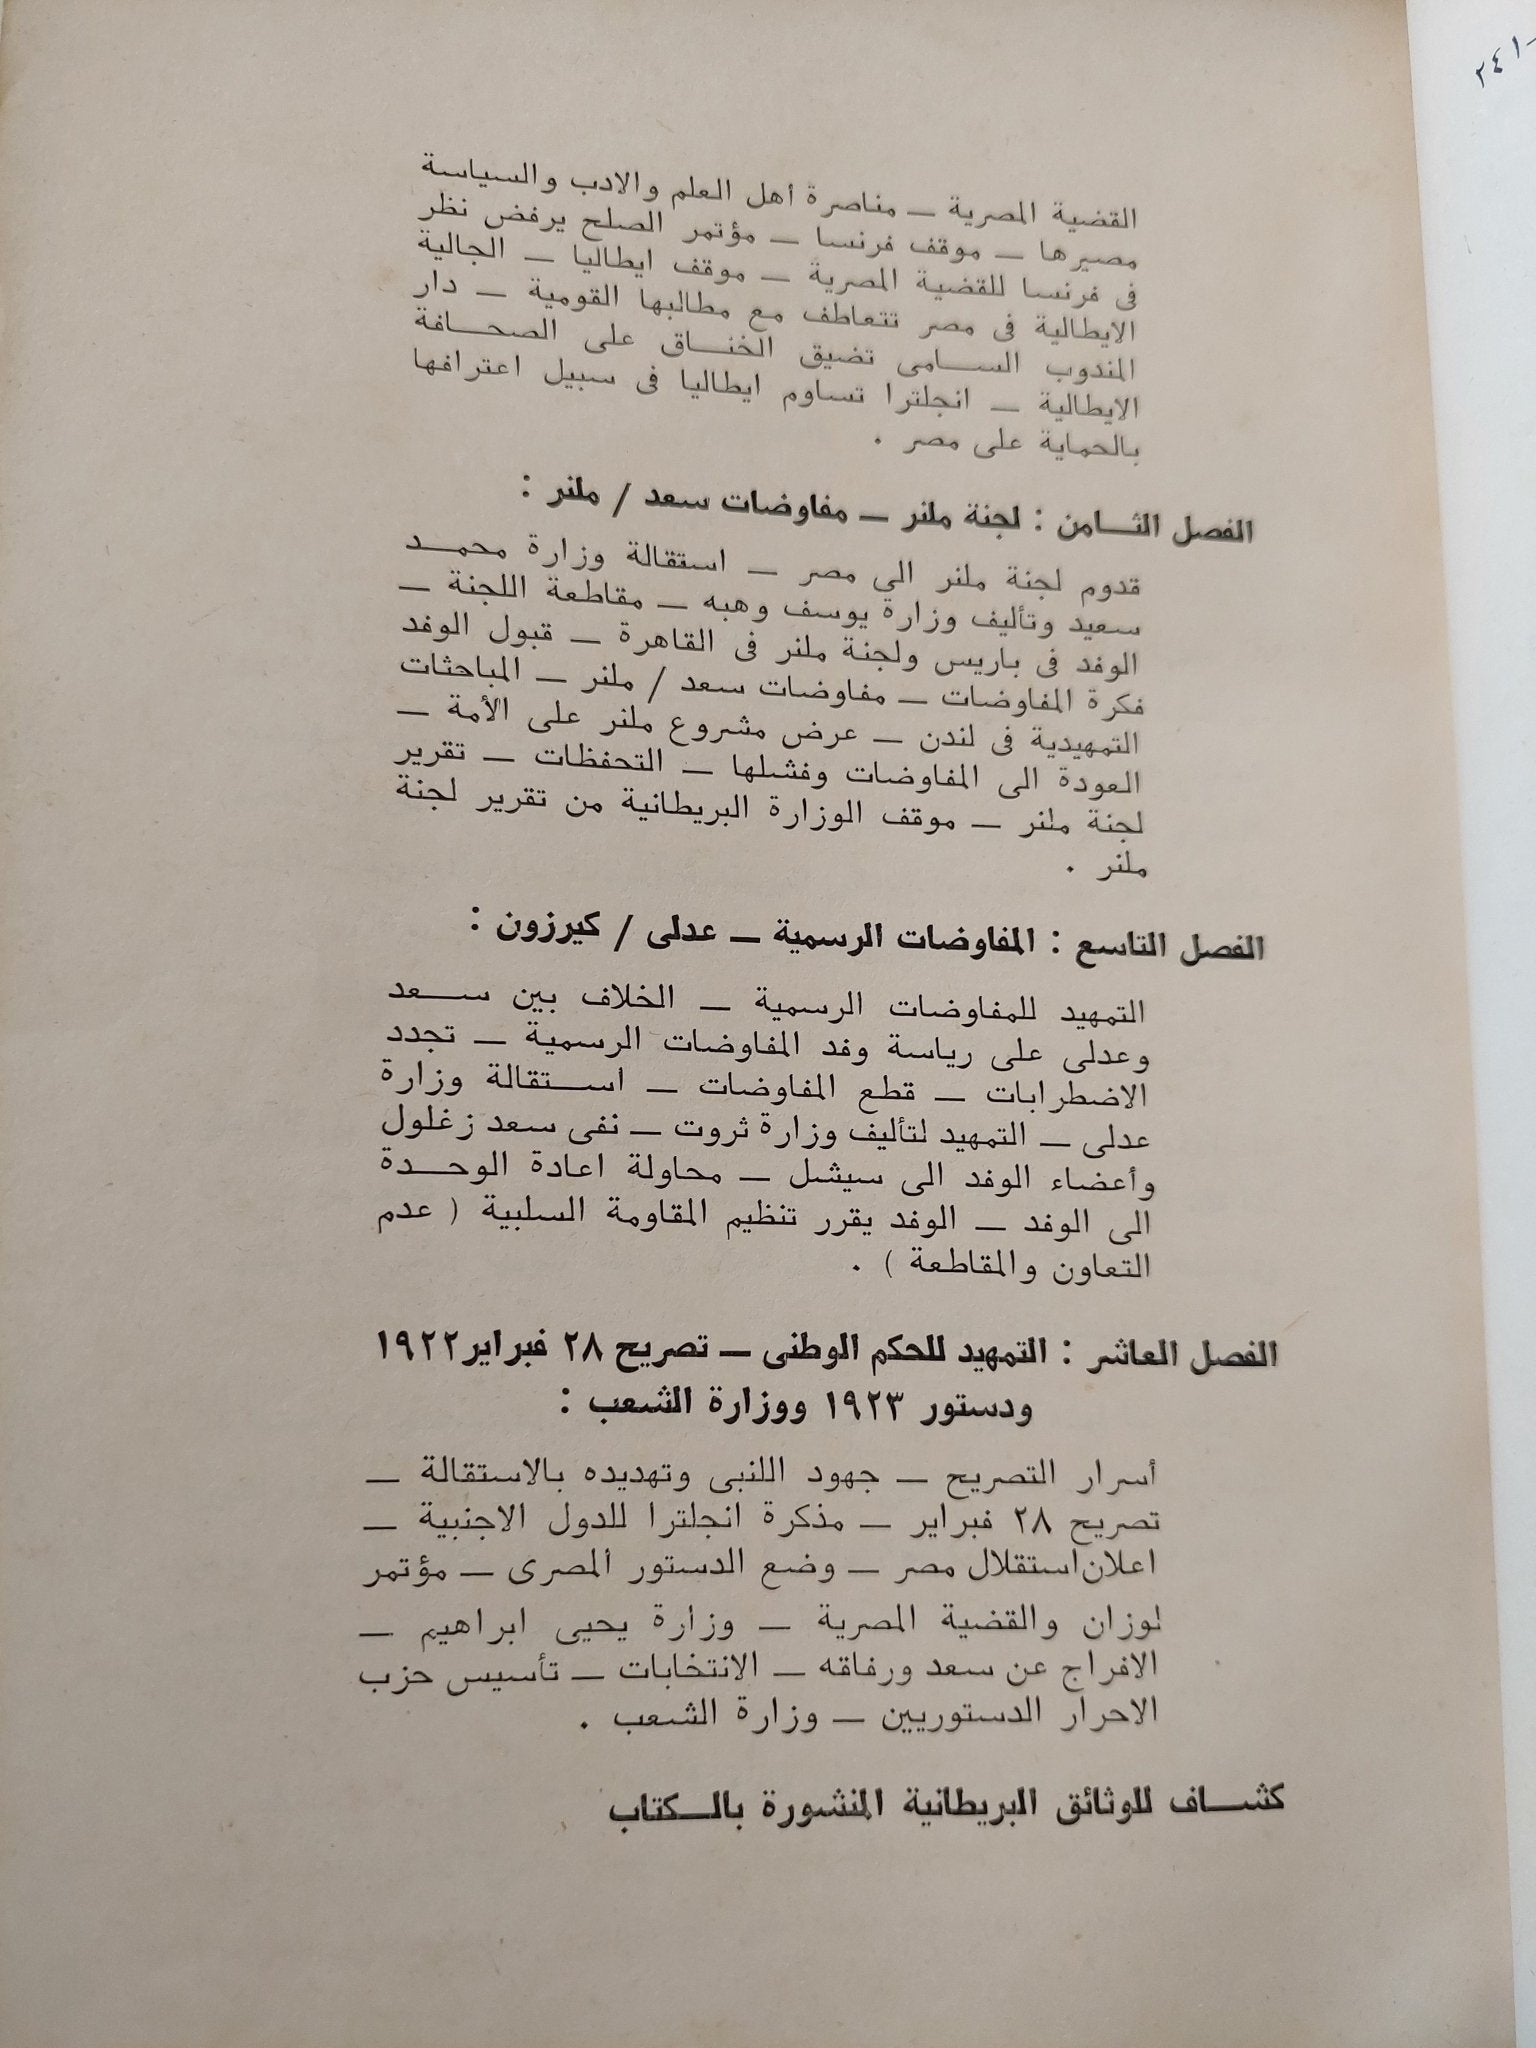 ٢٤١-
القضية المصرية — مناصرة أهل العلم والادب والسياسة
مصيرها — موقف فرنسا — مؤتمر الصلح يرفض نظر
فى فرنسا للقضية المصرية — موقف ايطاليا — الجالية
الايطالية فى مصر تتعاطف مع مطالبها القومية — دار
المندوب السامى تضيق الخناق على الصحافة
الايطالية — انجلترا تساوم ايطاليا فى سبيل اعترافها
بالحماية على مصر .
الفصل الثامن : لجنة ملنر — مفاوضات سعد / ملنر :
قدوم لجنة ملنر الى مصر — استقالة وزارة محمد
سعيد وتأليف وزارة يوسف وهبه — مقاطعة اللجنة —
الوفد فى باريس ولجنة ملنر فى القاهرة — قبول الوفد
فكرة المفاوضات — مفاوضات سعد / ملنر — المباحثات
التمهيدية فى لندن — عرض مشروع ملنر على الأمة —
العودة الى المفاوضات وفشلها — التحفظات — تقرير
لجنة ملنر — موقف الوزارة البريطانية من تقرير لجنة
ملنر .
الفصل التاسع : المفاوضات الرسمية — عدلى / كيرزون :
التمهيد للمفاوضات الرسمية — الخلاف بين سعد
وعدلى على رياسة وفد المفاوضات الرسمية — تجدد
الاضطرابات — قطع المفاوضات — استقالة وزارة
عدلى — التمهيد لتأليف وزارة ثروت — نفى سعد زغلول
وأعضاء الوفد الى سيشل — محاولة اعادة الوحدة
الى الوفد — الوفد يقرر تنظيم المقاومة السلبية ( عدم
التعاون والمقاطعة ) .
الفصل العاشر : التمهيد للحكم الوطنى — تصريح ٢٨ فبراير ١٩٢٢
ودستور ١٩٢٣ ووزارة الشعب :
أسرار التصريح — جهود اللنبى وتهديده بالاستقالة —
تصريح ٢٨ فبراير — مذكرة انجلترا للدول الاجنبية —
اعلان استقلال مصر — وضع الدستور المصرى — مؤتمر
لوزان والقضية المصرية — وزارة يحيى ابراهيم —
الافراج عن سعد ورفاقه — الانتخابات — تأسيس حزب
الاحرار الدستوريين — وزارة الشعب .
كشاف للوثائق البريطانية المنشورة بالكتاب